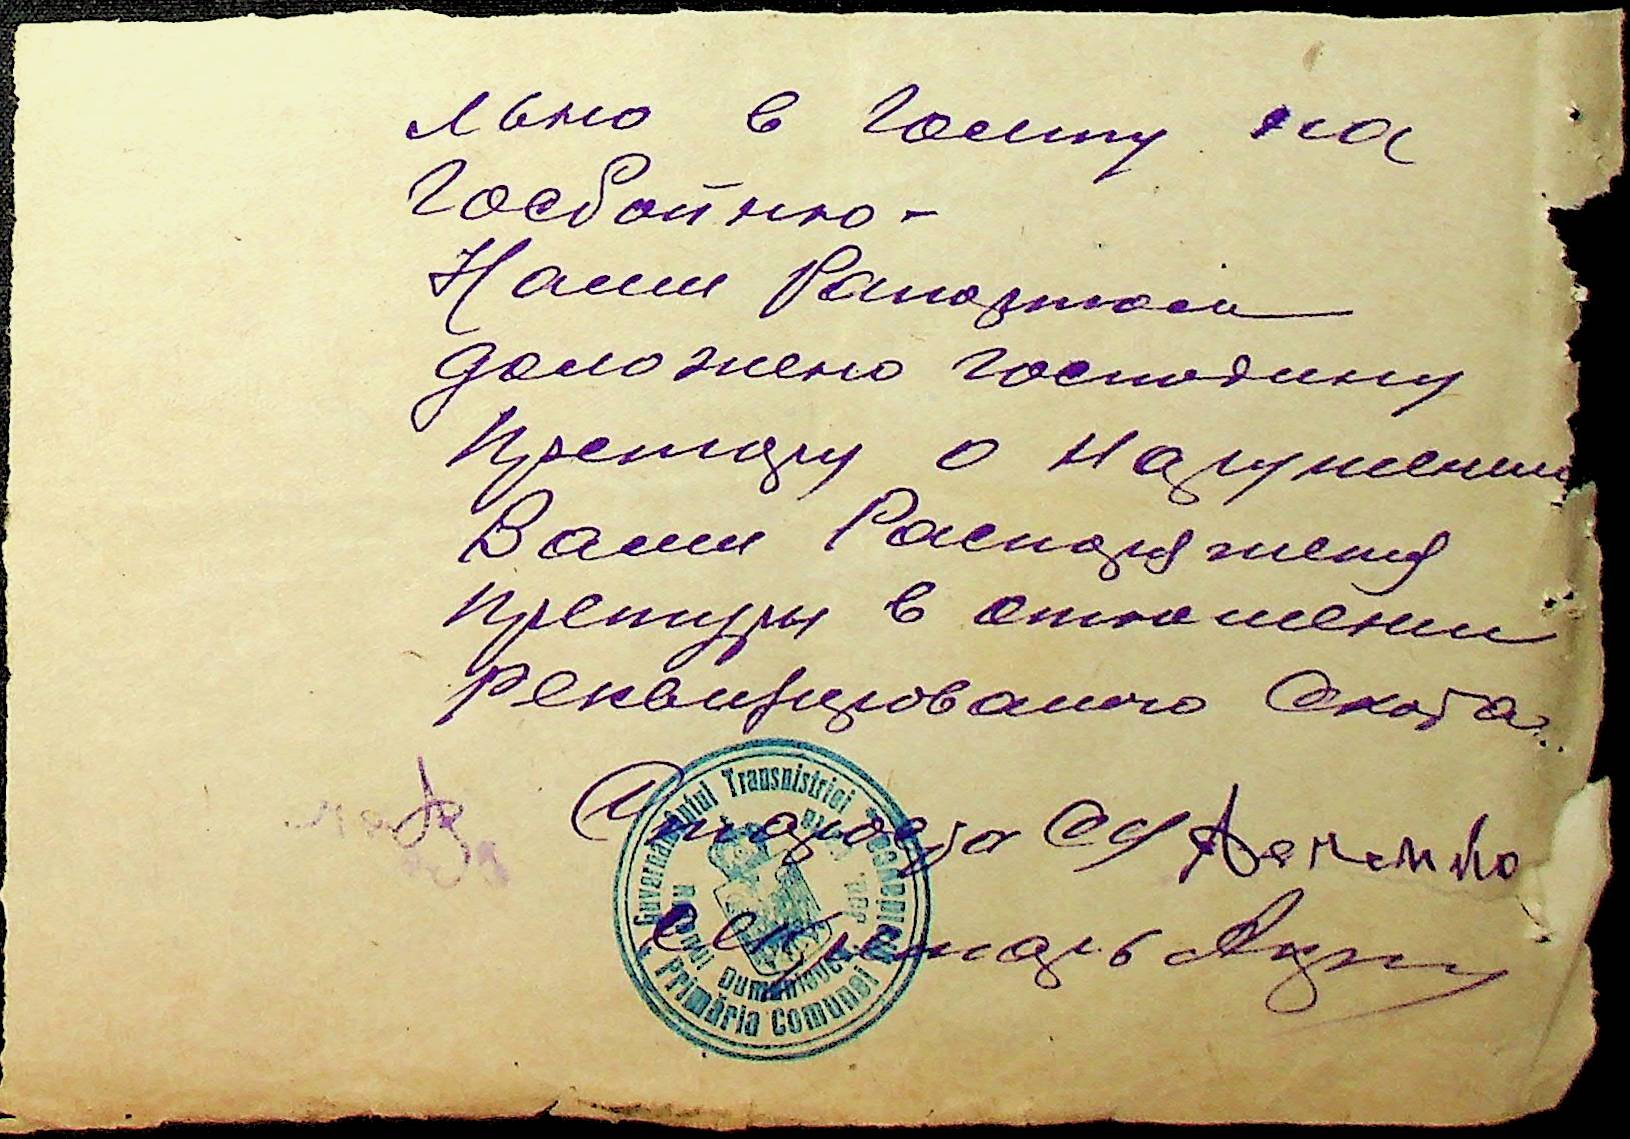 льно в Голту на
Госбойню-
Нами Рапортом
доложено господину
Претору о нарушении
Вами Распоряжения
претуры в отношении
реквизированого скота.
Староста
Секретарь
Guvernământul Transnistriei
Primăria Comunei